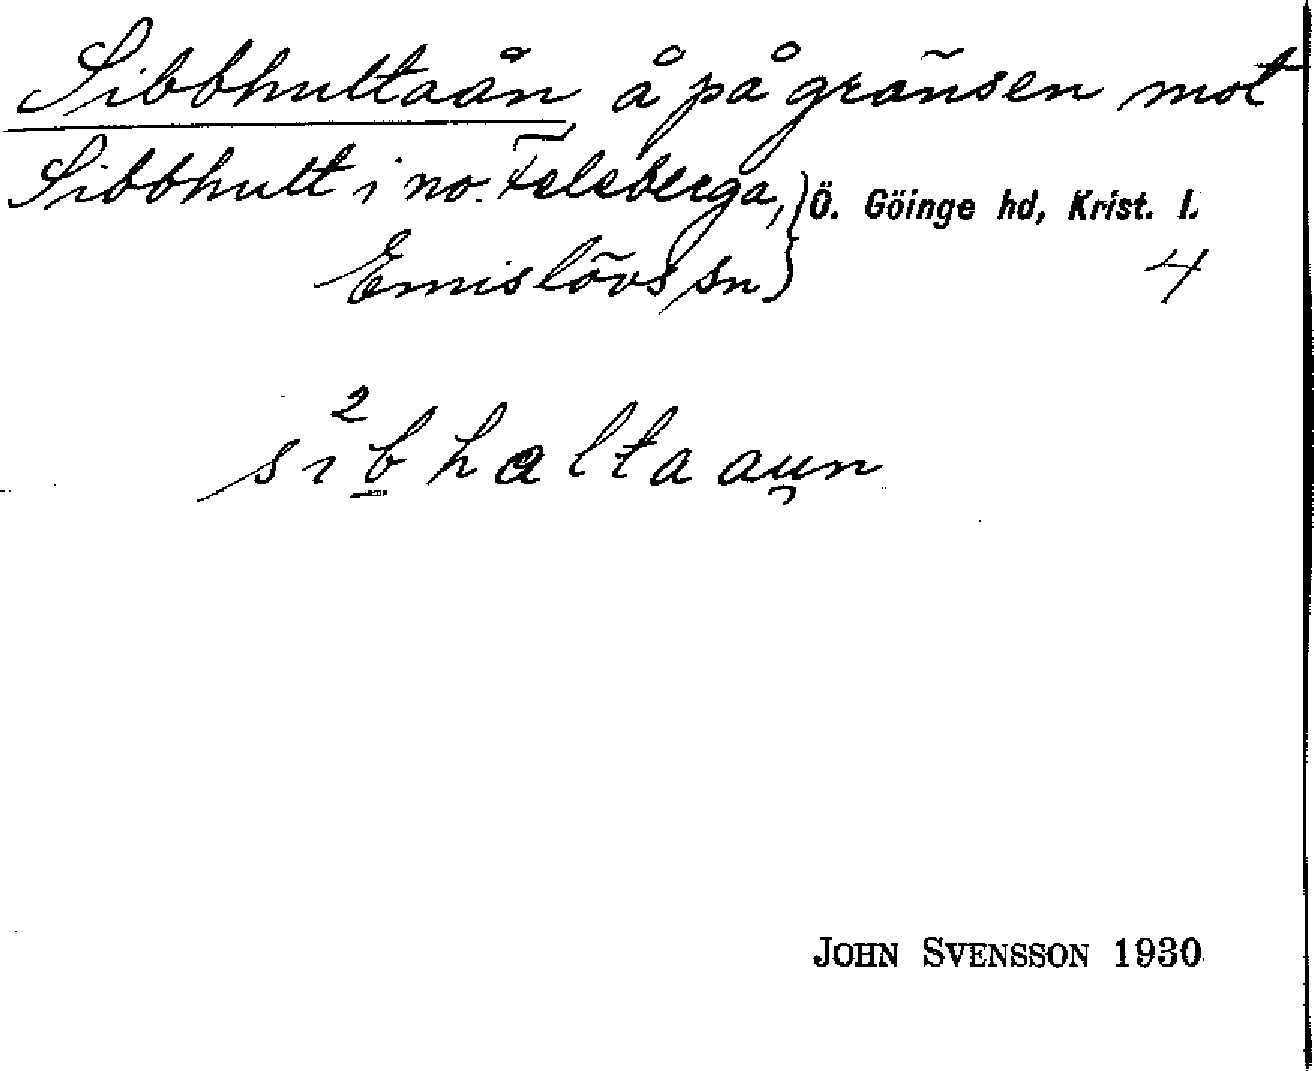 Sibbhultaån å på gränsen mot
Sibbhult i no. Feleberga,} Ö. Göinge hd, Krist. l.
Emislövs sn} 4
2
sibhaltaaun
JOHN SVENSSON 1930